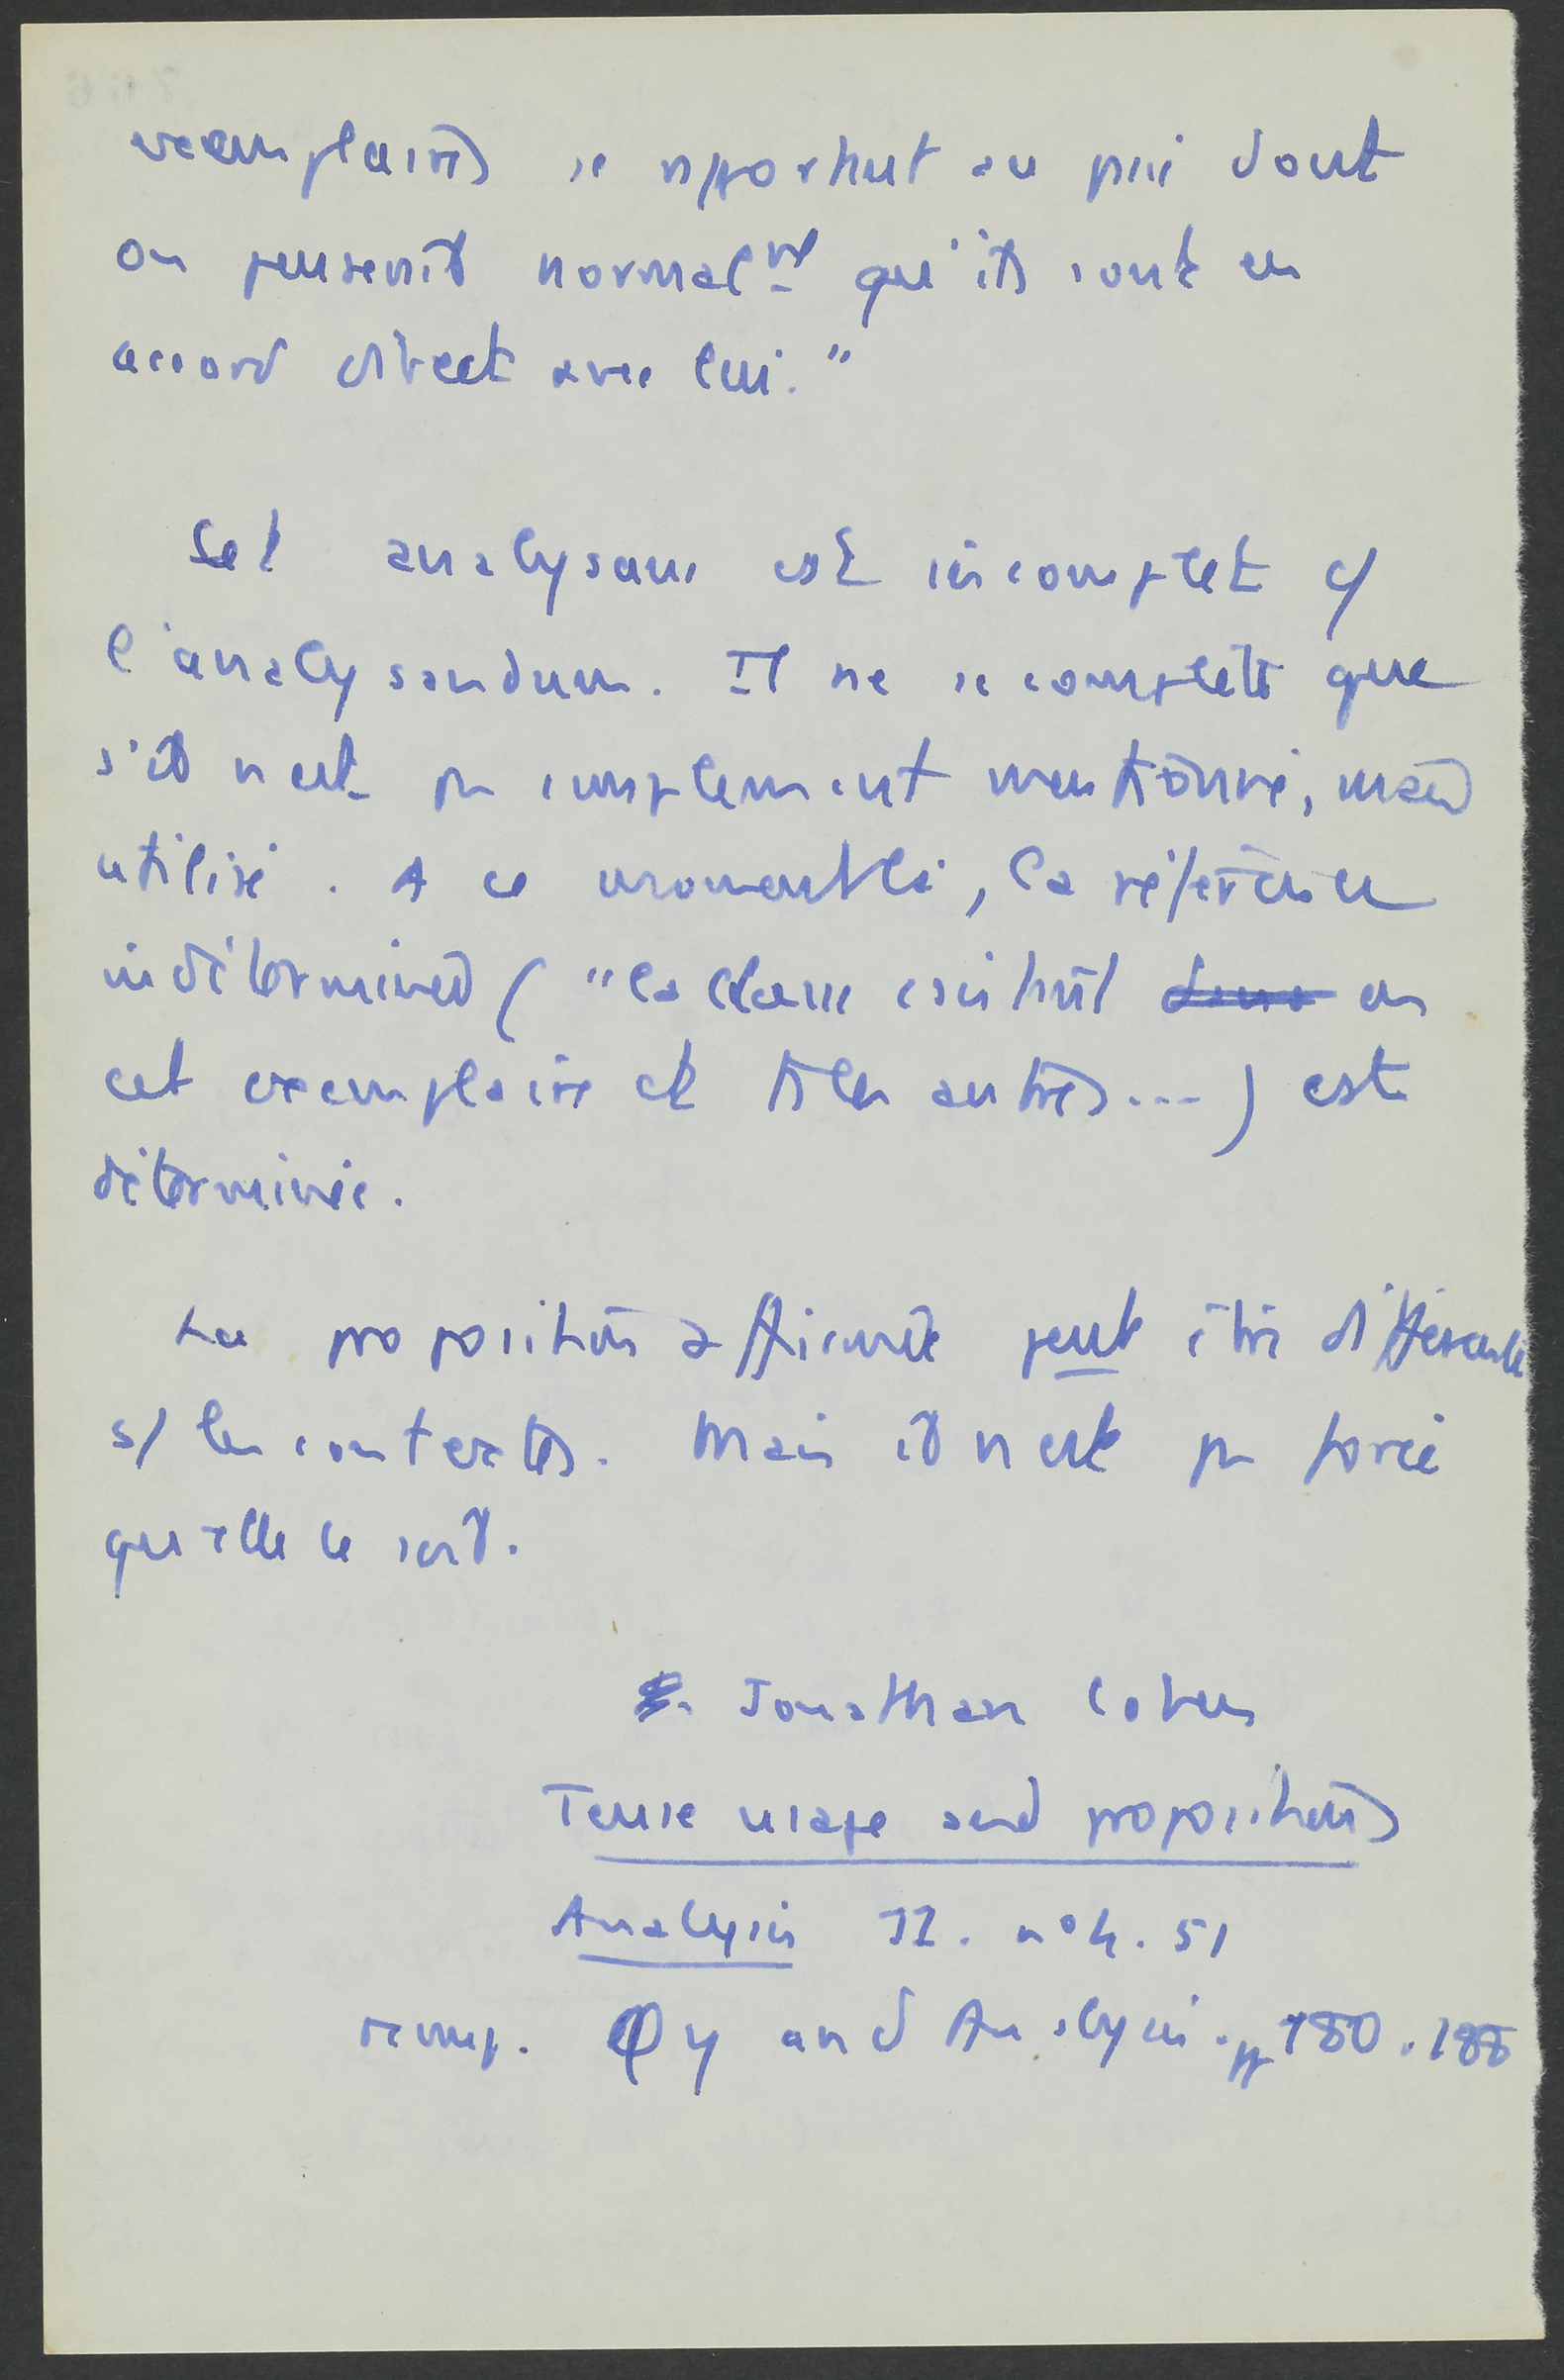 exemplaires se rapportent au passé dont
on penserait normalᵗ qu'ils sont en
accord direct avec lui."
Cet analysans est incomplet c/
l'analysandum. Il ne se complète que
s'il n'est pas simplement mentionné, mais
utilisé. A ce moment là, la référence
indéterminée ("la classe construit ~~dans~~ en
cet exemplaire et tels autres...) est
déterminée.
La proposition affirmée peut être différente
s/ les contextes. Mais il n'est pas forcé
qu'elle le soit.
Jonathan Cohen
Tense usage and propositions
Analysis 11. n°4. 51
réimp. φy and Analysis. pp 180.188